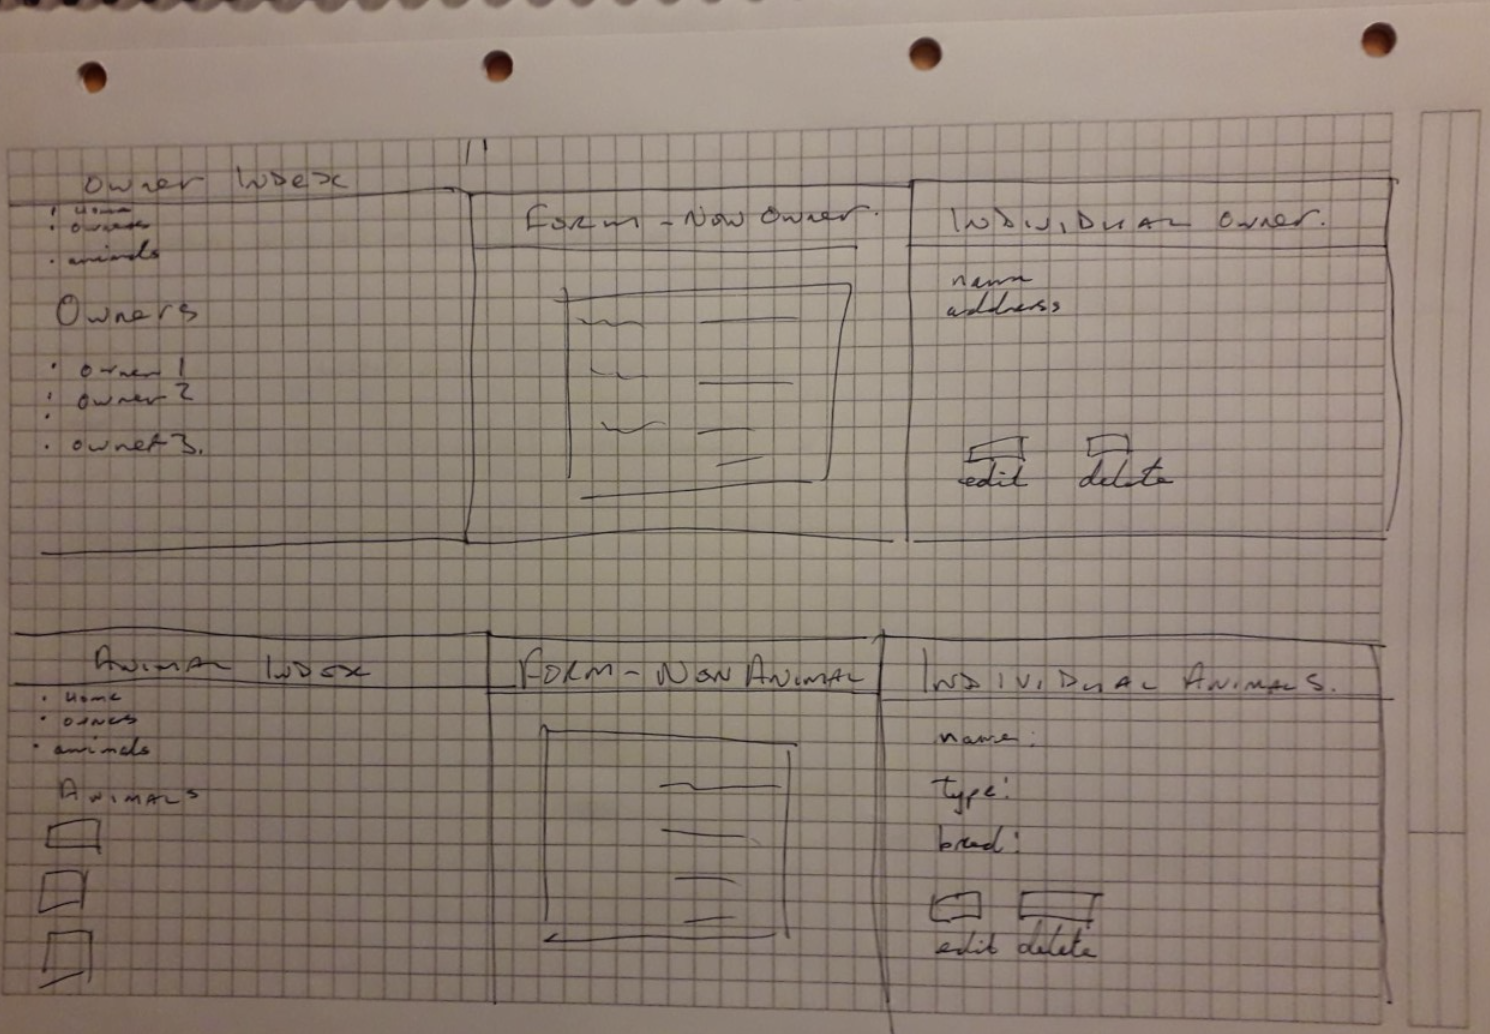 Owner Index
· Home
· owners
· animals
Owners
· owner 1
· owner 2
·
· owner 3.
Form - New Owner.
Individual Owner.
name
address
edit delete
Animal Index
· Home
· owners
· animals
Animals
Form - New Animal
Individual Animals.
name:
type:
breed:
edit delete